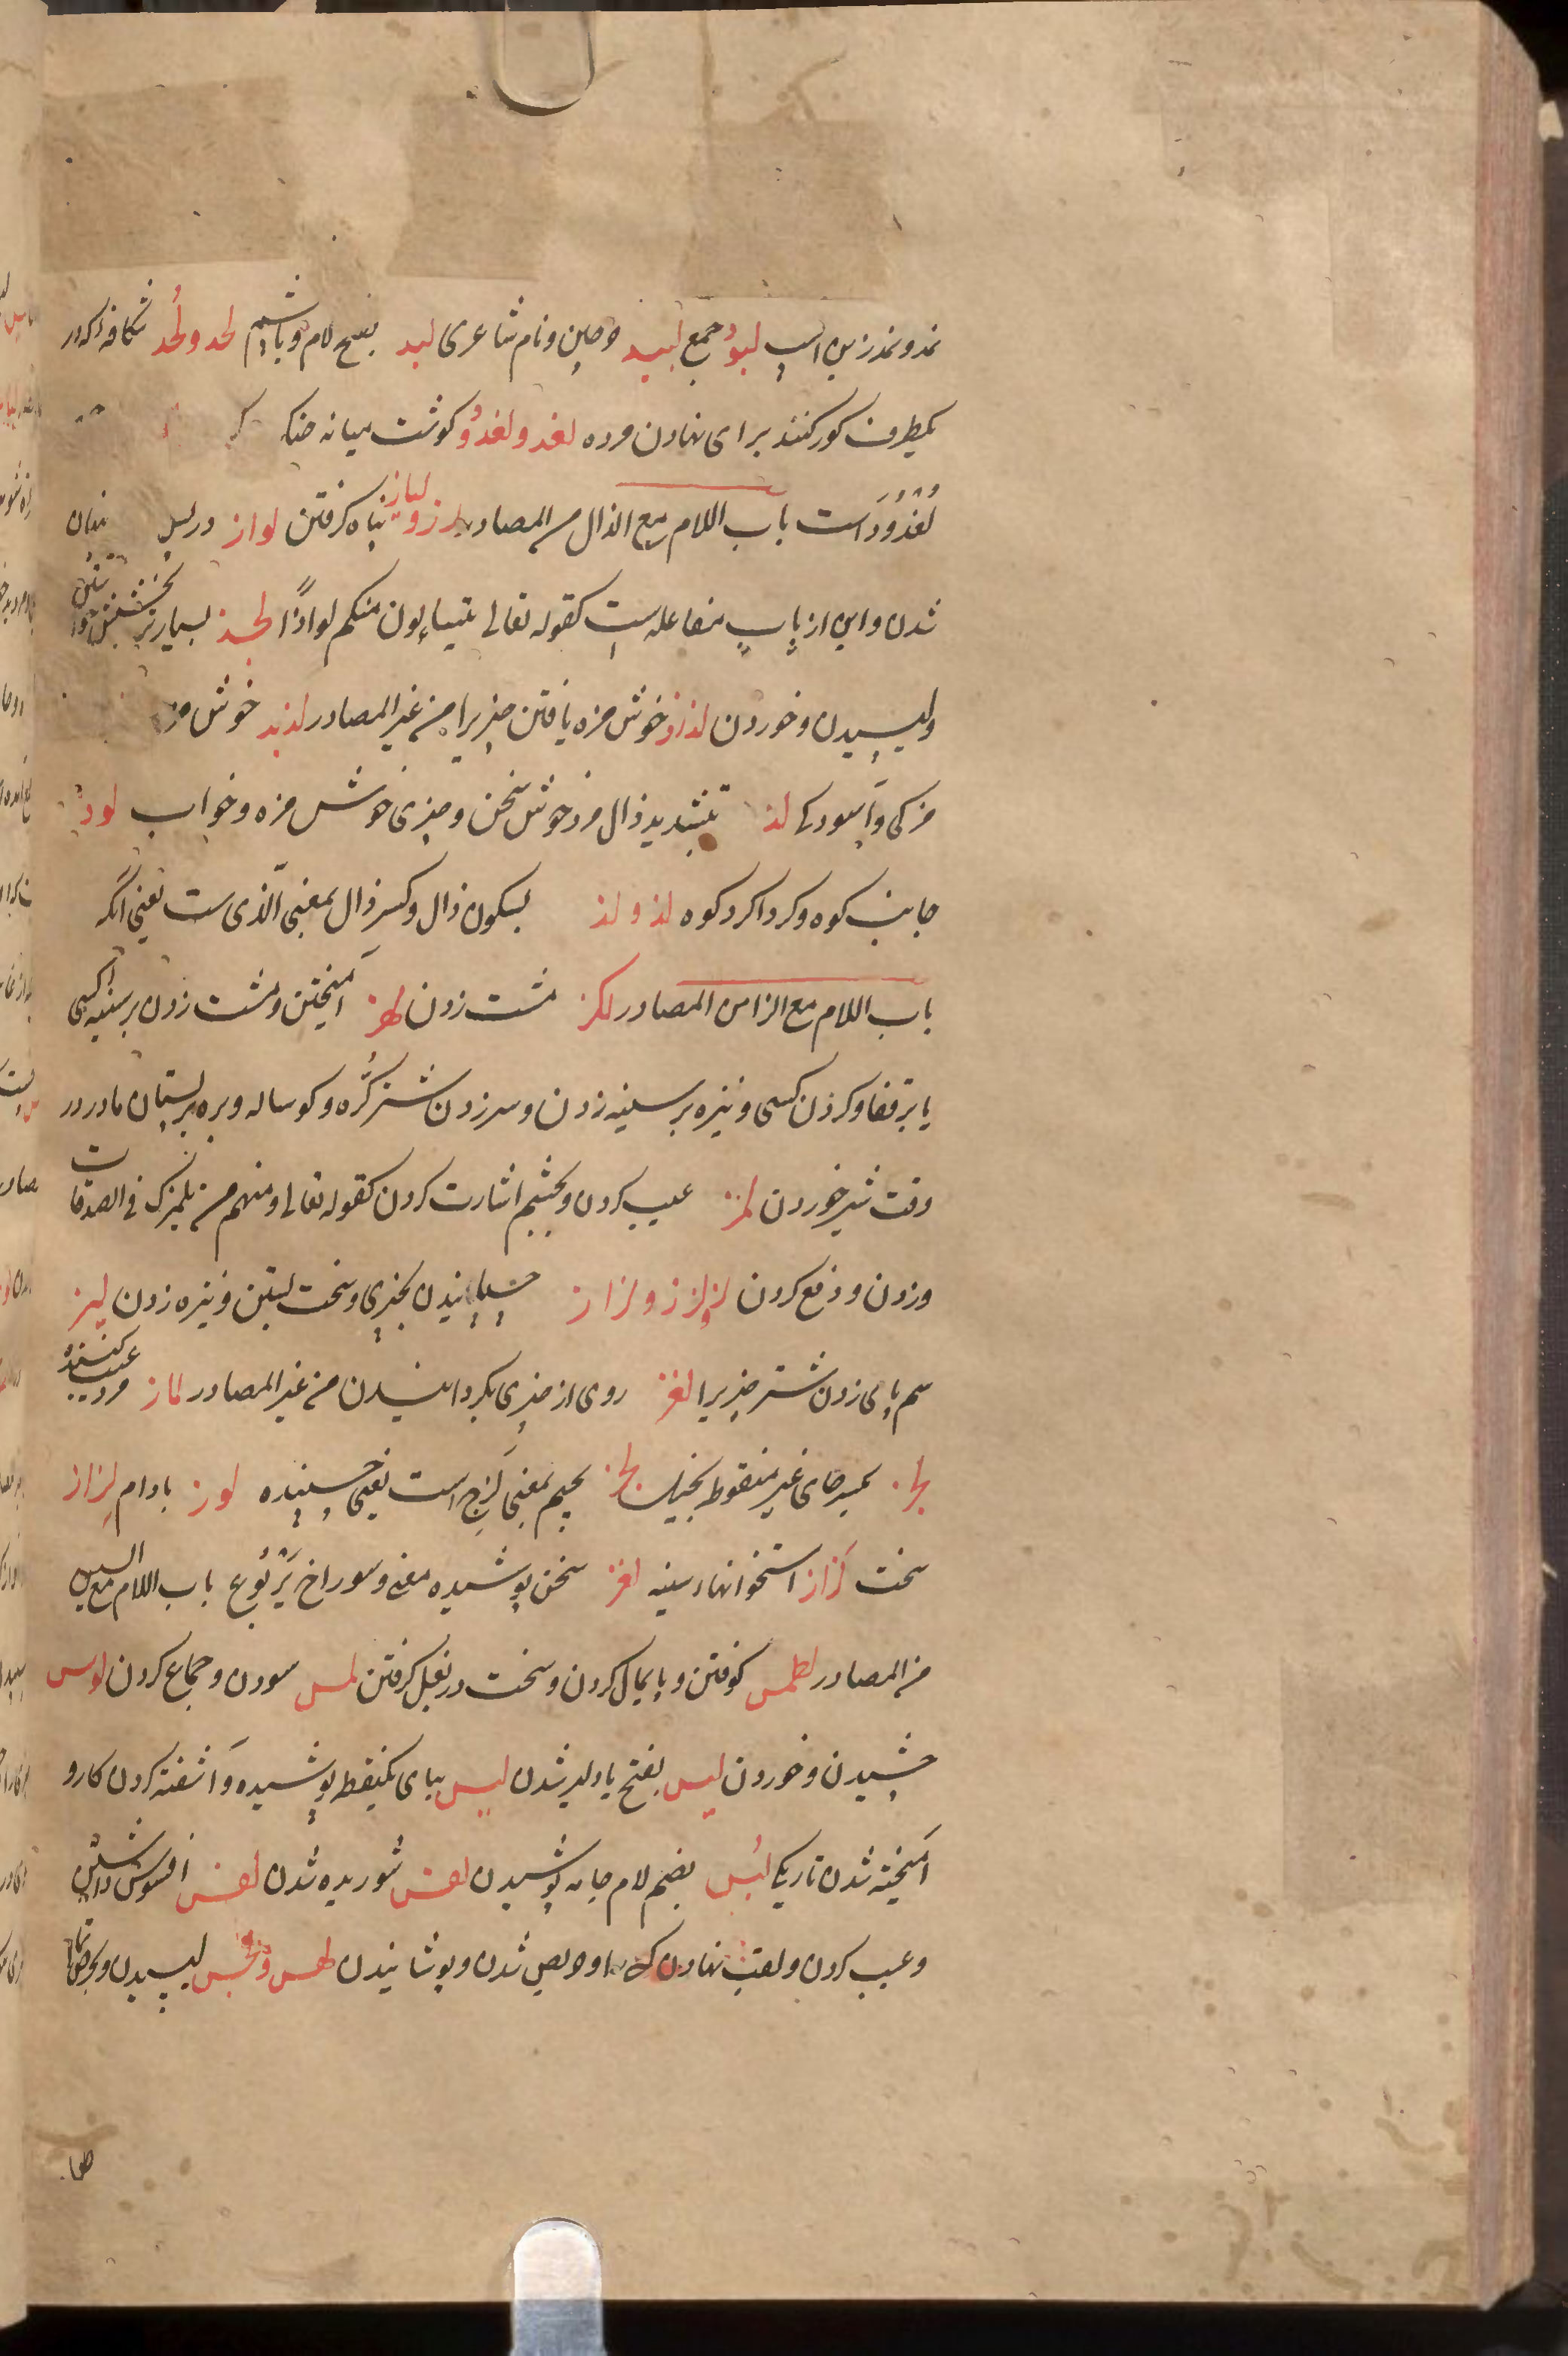 نمد و نمد زین اسپ لبود جمع لبید و نام شاعری لبد بفتح لام و با پشم لحد و لُحد شکافه که در
یکطرف کور کنند برای نهادن مرده لغد و لغدود کوشت میانه
لُغدُود است باب اللام مع الذال من المصادر لوذ و لیاذ پناه کرفتن لواذ در پس پنهان
شدن و این از باب مفاعله است کقوله تعالی یتسللون منکم لواذًا لجذ بسیار
و لیسیدن و خوردن لذاذ خوش مزه یافتن چیزیرا من غیر المصادر لذیذ خوش مزه
مزکی و آسودکی لذ بتشدید ذال مرد خوش سخن و چیزی خوش مزه و خواب لوذ
جانب کوه و کرداکرد کوه لذ و لذ بسکون ذال و کسر ذال بمعنی الّذی ست یعنی آنکه
باب اللام مع الزا من المصادر لکز مشت زدن لهز آمیختن و مشت زدن بر سینه کسی
یا بر قفا و کردن کسی و نیزه بر سینه زدن و سر زدن شتر کُره و کوساله و بره بر پستان مادر در
وقت شیر خوردن لمز عیب کردن و بچشم اشارت کردن کقوله تعالی و منهم من یلمزک فی الصدقات
و زدن و دفع کردن لز لزز و لزاز چسپانیدن بچیزی و سخت بستن و نیزه زدن لبز
سم پای زدن شتر چیزیرا لغز روی از چیزی بکردانیدن من غیر المصادر لماز مرد عیب کننده
لحز بکسر حای غیر منقوط بخیل لجز بجیم بمعنی لَزِج است یعنی چسپنده لوز بادام لِزاز
سخت لَزاز استخوانهاء سینه لغز سخن پوشیده معنی و سوراخ یَربُوع باب اللام مع السین
من المصادر لطس کوفتن و پایمال کردن و سخت در بغل کرفتن لمس سودن و جماع کردن لوس
چشیدن و خوردن لیس بفتح یا دلیر شدن لبس ببای یکنقطه پوشیده و آشفته کردن کار و
آمیخته شدن تاریکی لُبس بضم لام جامه پوشیدن لقس شوریده شدن لقس افسوس داشتن
و عیب کردن و لقب نهادن کسی را و حریص شدن و پوشانیدن لهس و لحس لیسیدن و